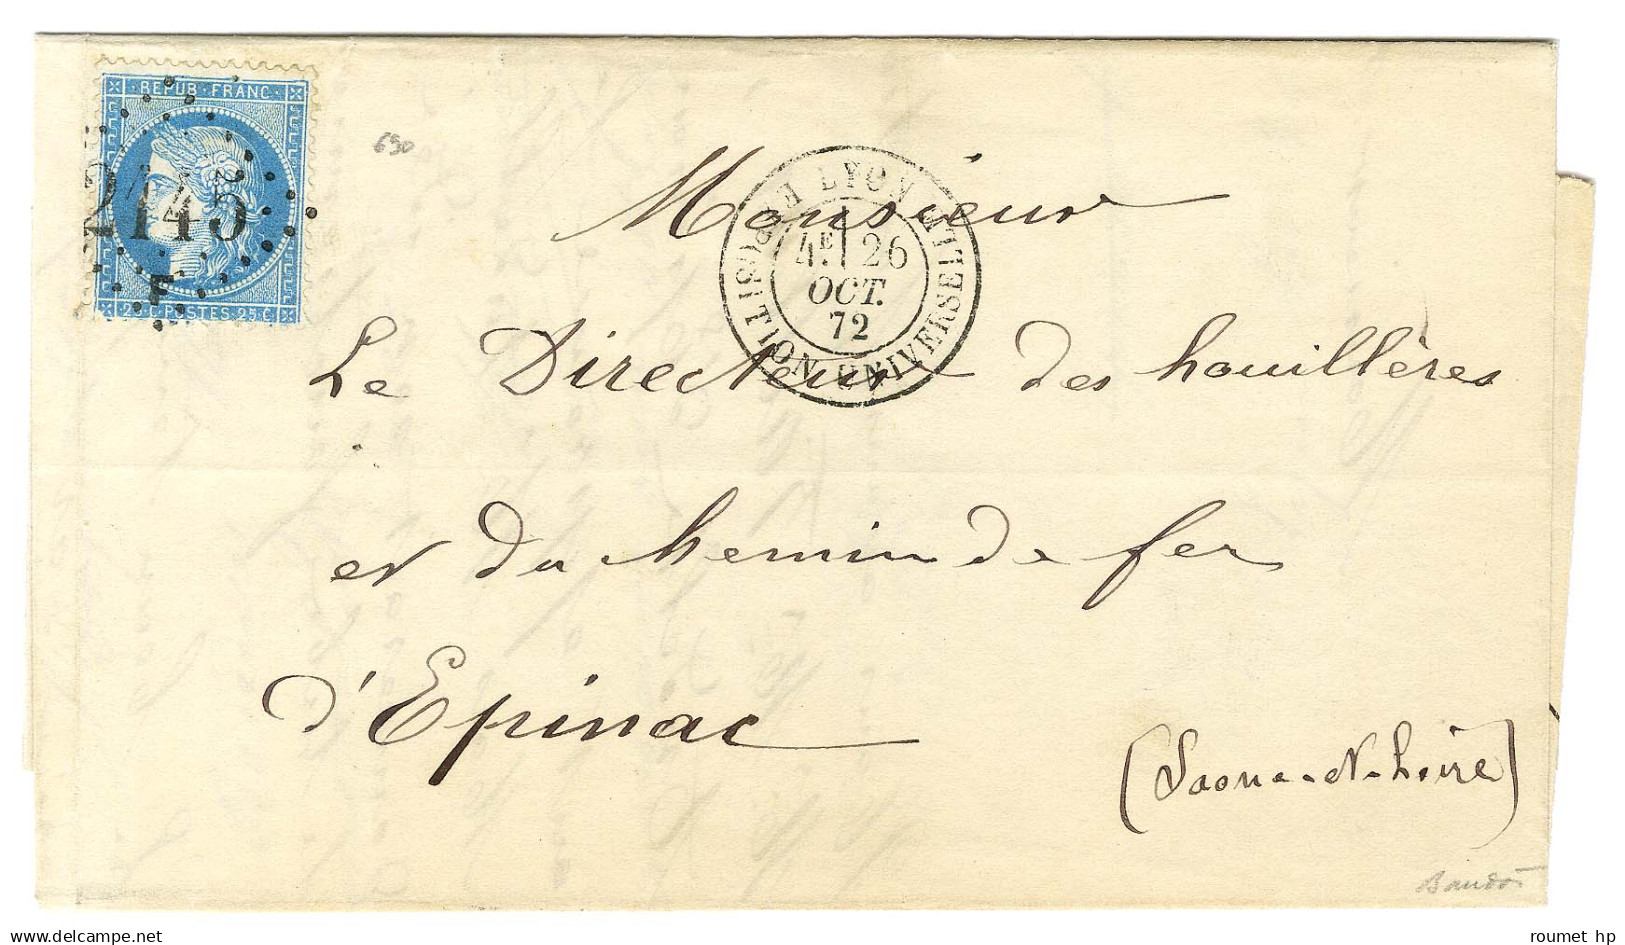 REPUB·FRANC·
2145
F
25 C·POSTES·25 C
690
LYON
EXPOSITION UNIVERSELLE
4E 26
OCT.
72
Monsieur
Le Directeur des houillères
et du Chemin de fer
d'Epinac
(Saone-et-Loire)
Baudot
roumet hp